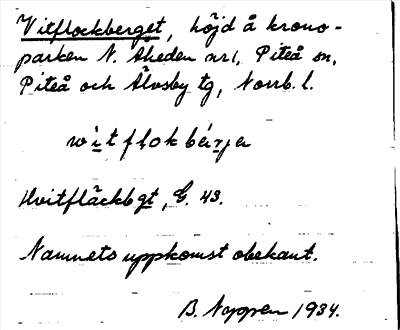 Vitflockberget, höjd å krono-
parken N. Åheden nr 1, Piteå sn,
Piteå och Älvsby tg, Norrb. l.
witflokbärja
Hvitfläckbgt, G. 43.
Namnets uppkomst obekant.
B. Nygren 1934.